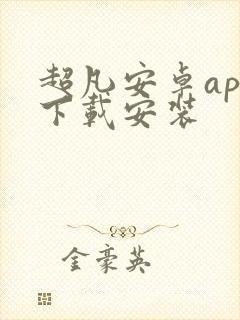 超凡安卓ap
下载安装
金豪英